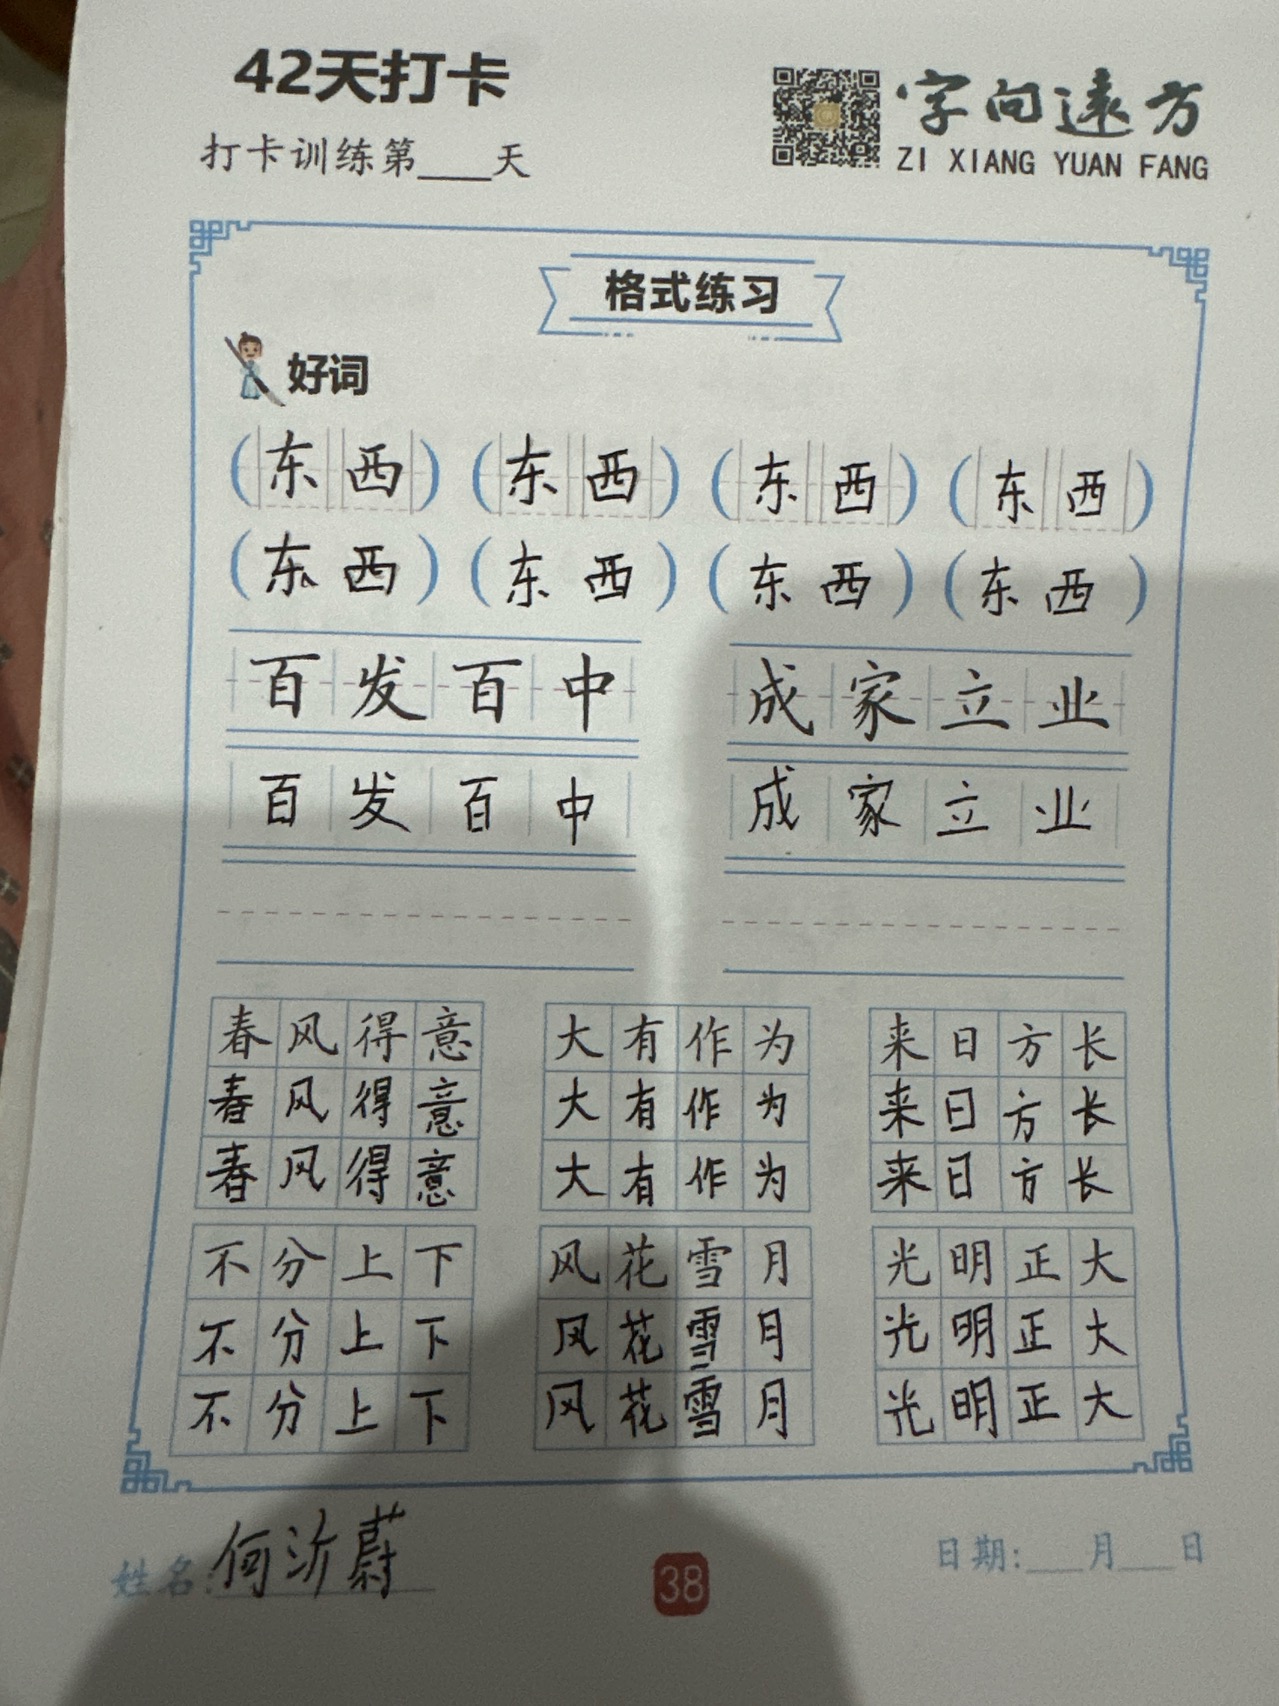 42天打卡
字向遠方
打卡训练第___天
ZI XIANG YUAN FANG
格式练习
好词
(东西) (东西) (东西) (东西)
(东西) (东西) (东西) (东西)
百发百中 成家立业
百发百中 成家立业
春风得意 大有作为 来日方长
春风得意 大有作为 来日方长
春风得意 大有作为 来日方长
不分上下 风花雪月 光明正大
不分上下 风花雪月 光明正大
不分上下 风花雪月 光明正大
姓名:何沂蔚
38
日期:___月___日